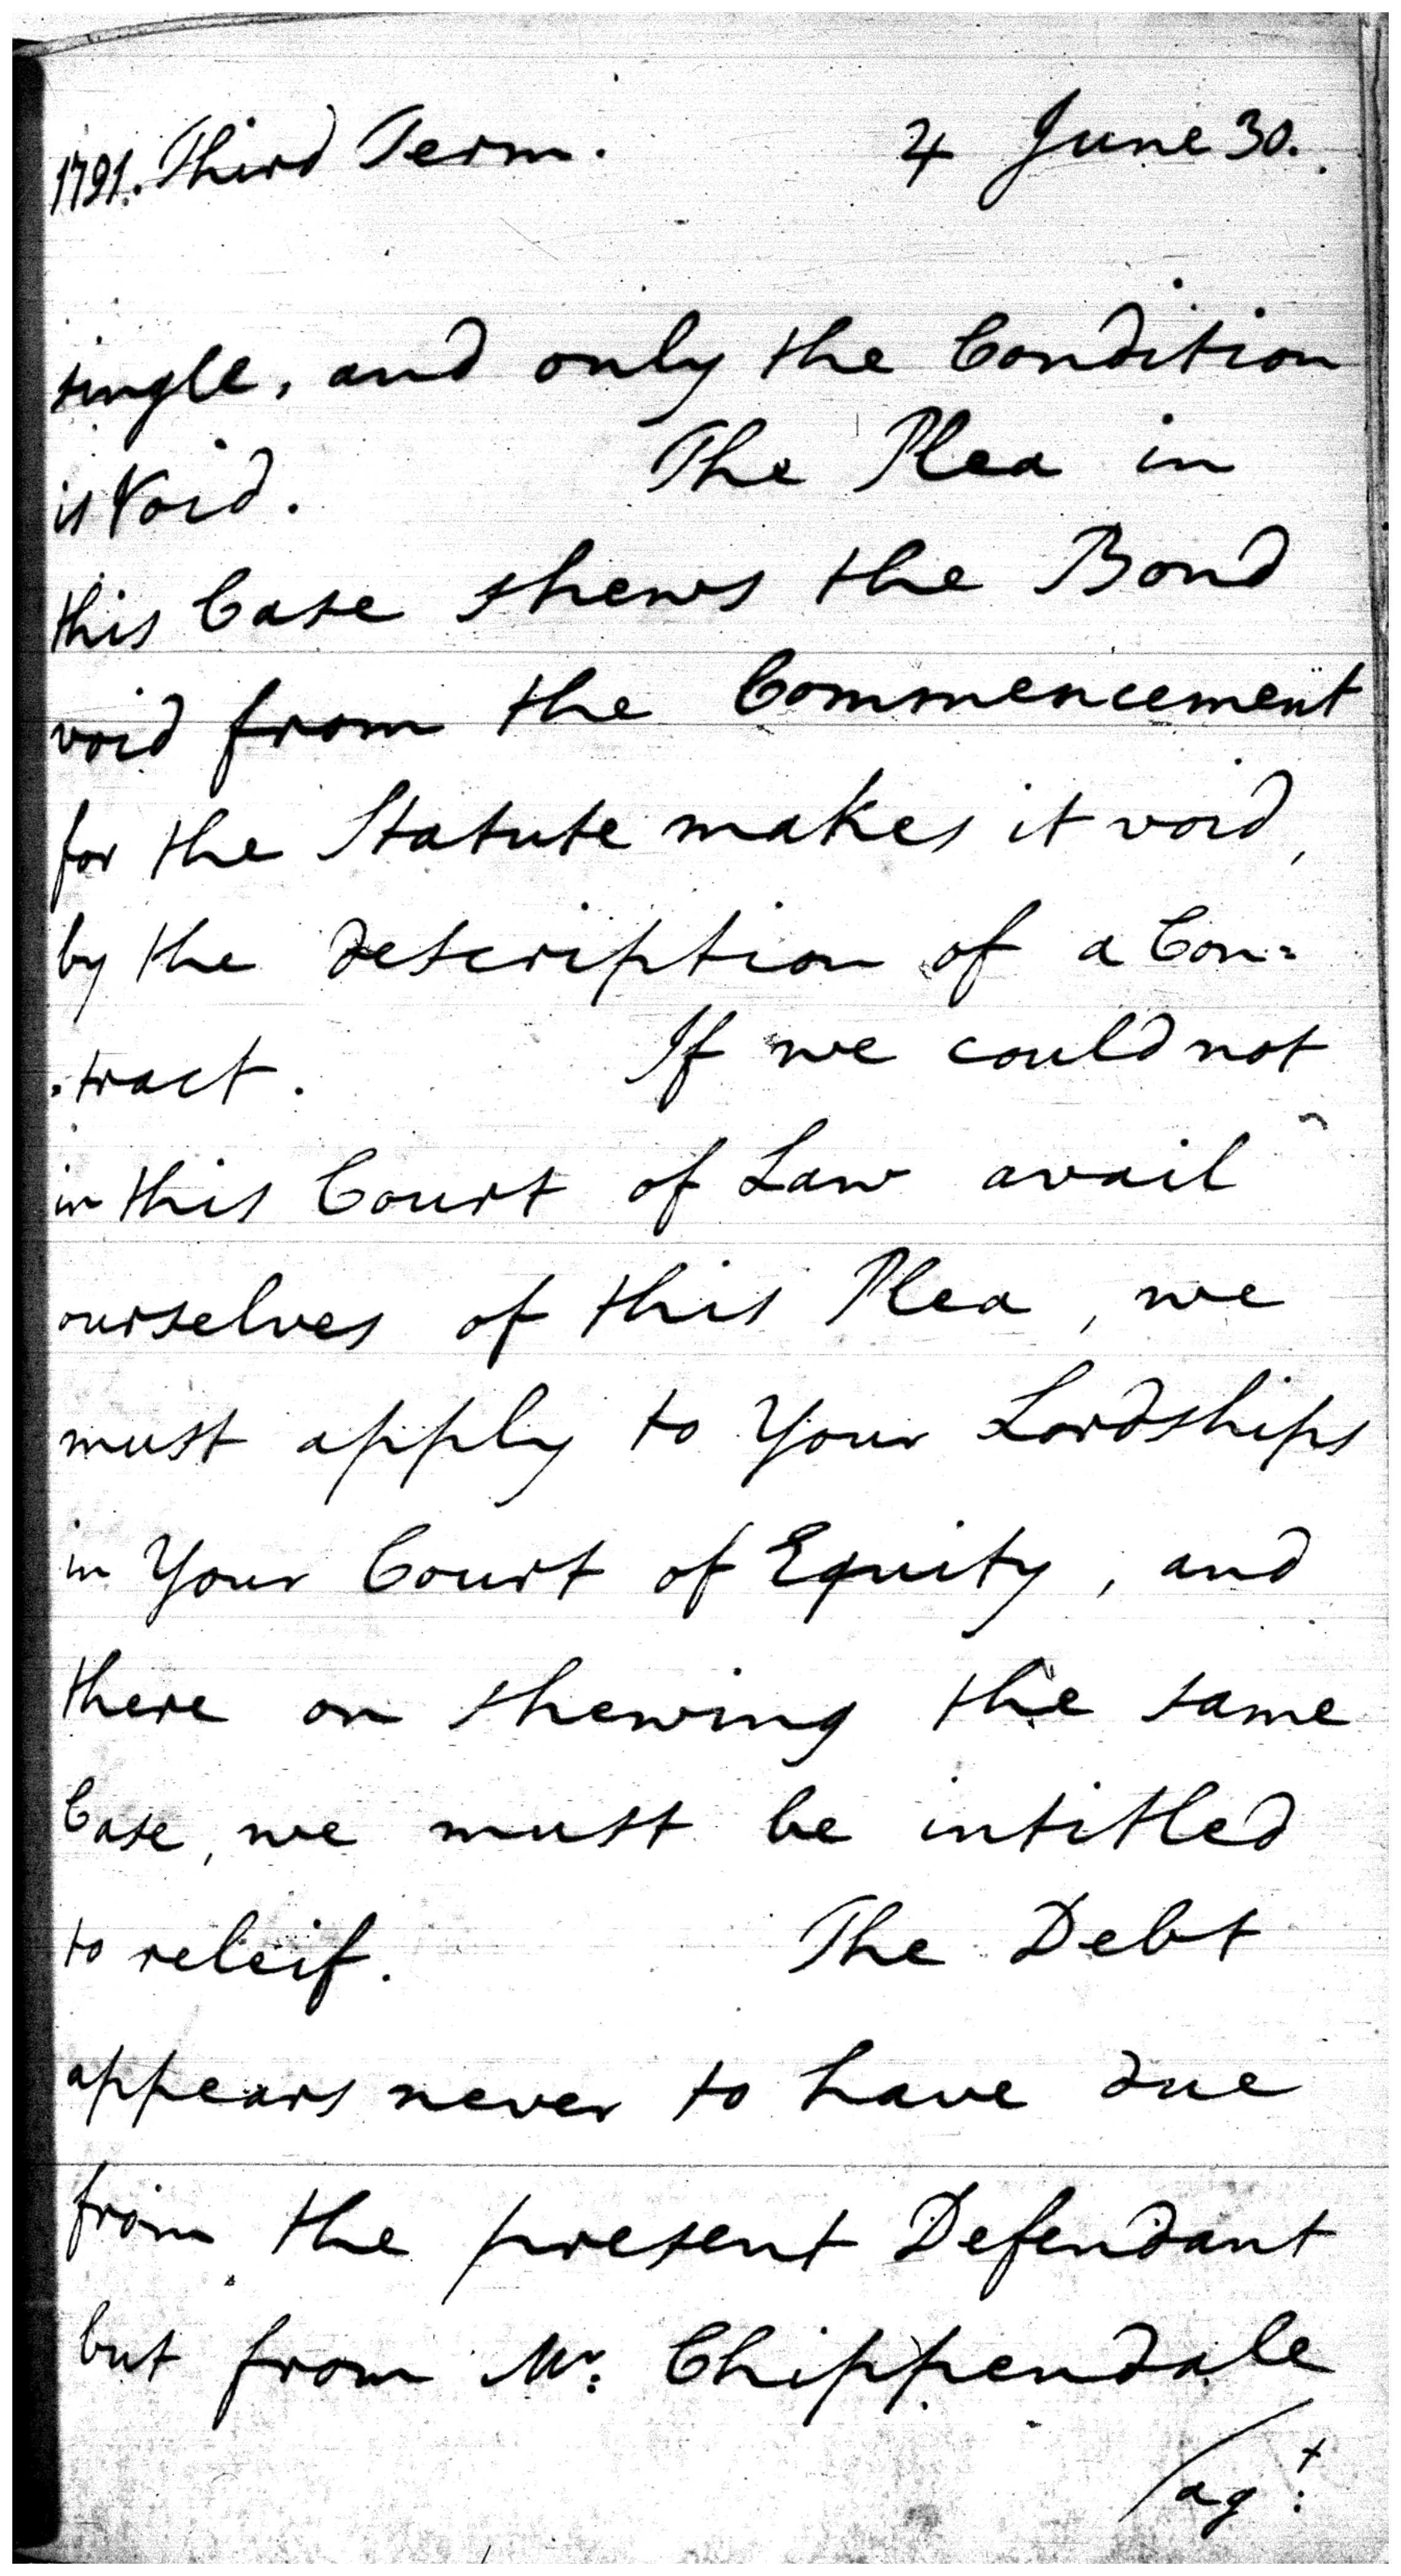 1791. Third Term. 4 June 30.
single, and only the Condition
is Void. The Plea in
this Case shews the Bond
void from the Commencement
for the Statute makes it void,
by the description of a Con=
=tract. If we could not
in this Court of Law avail
ourselves of this Plea, we
must apply to Your Lordships
in Your Court of Equity, and
there on shewing the same
Case, we must be intitled
to releif. The Debt
appears never to have due
from the present Defendant
but from Mr: Chippendale
/agt: